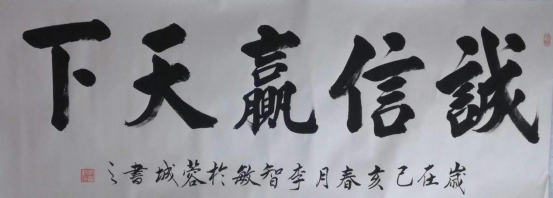 誠信贏天下
歲在己亥春月李智敏於蓉城書之